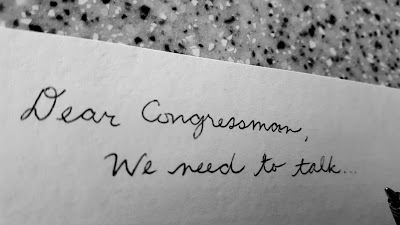 Dear Congressman,
We need to talk...